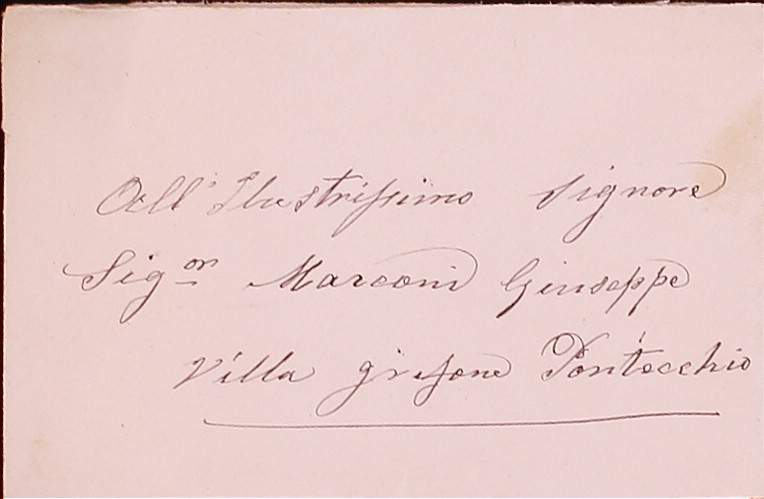 All' Ilustrissimo Signore
Sigor Marconi Giuseppe
Villa grifone Pontecchio